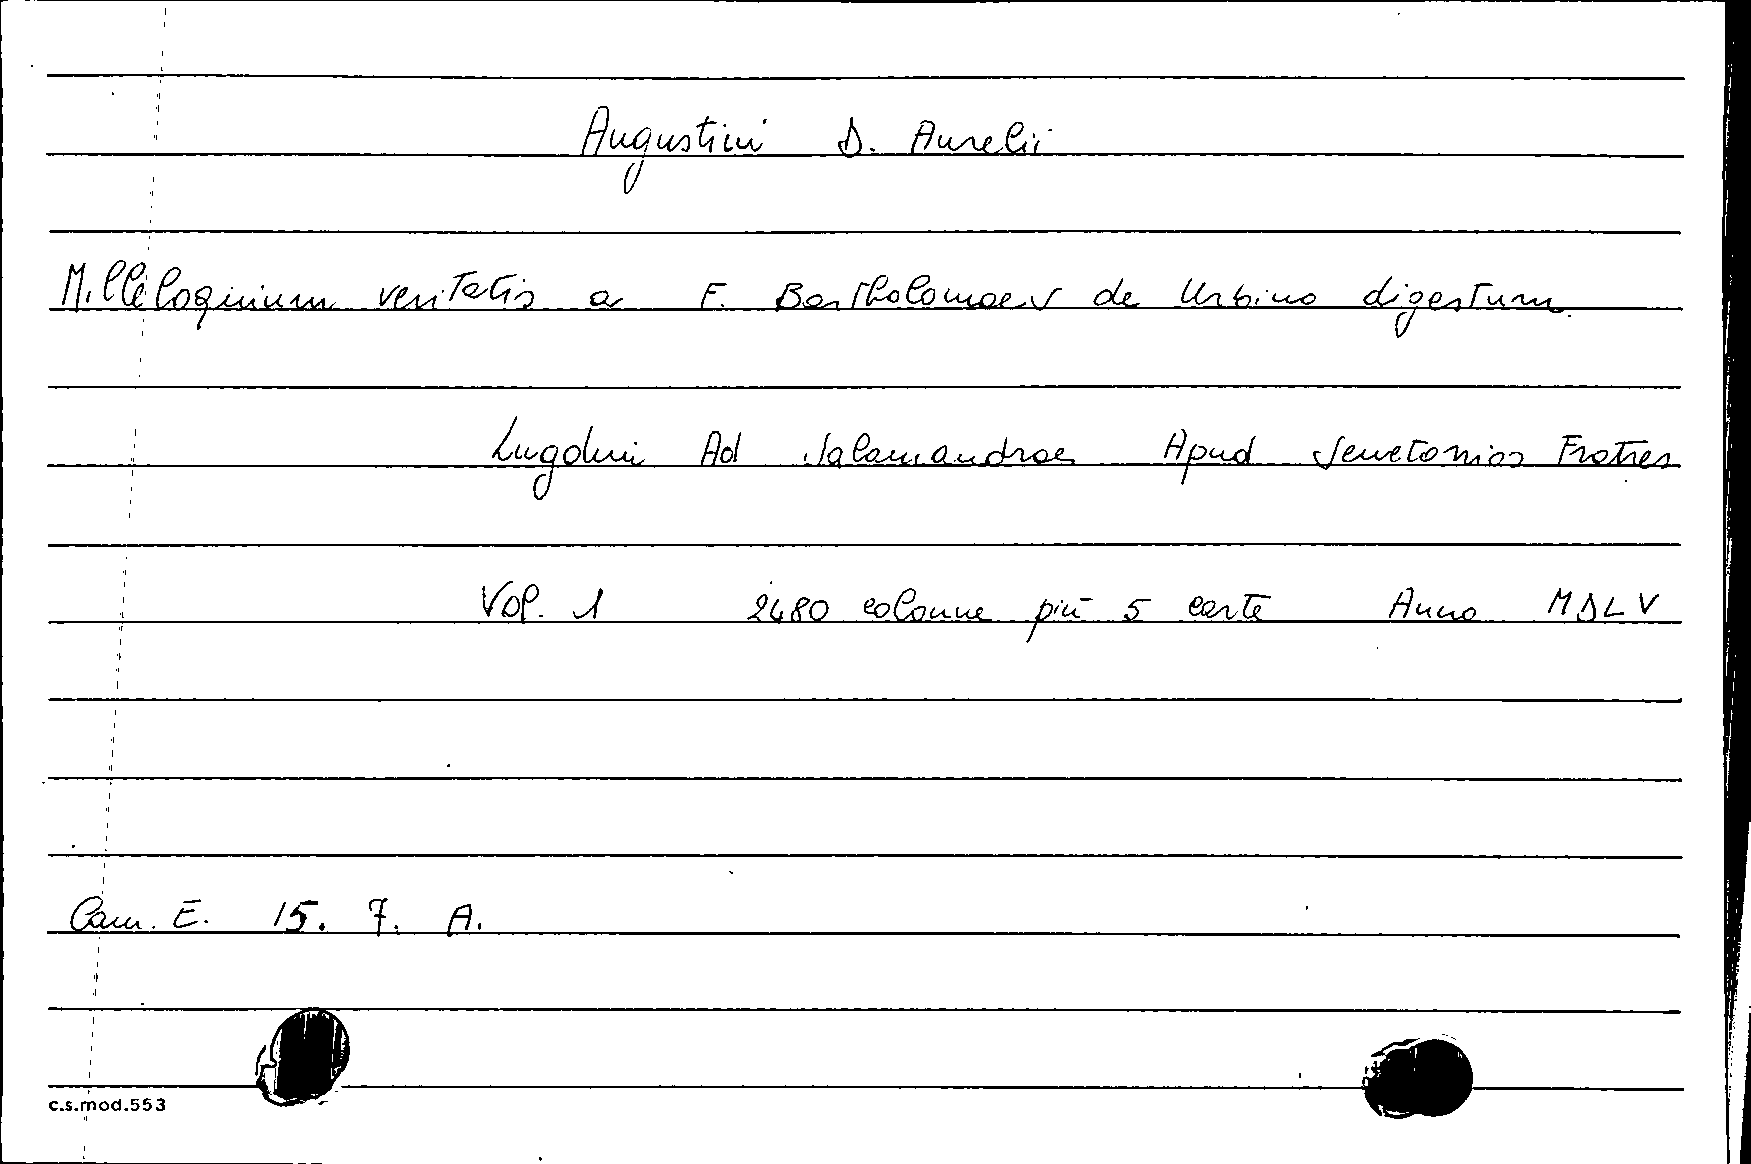 Augustini D. Aurelii
Milleloquium veritatis a F. Bartholomaeu de Urbino digestum
Lugduni Ad Salamandrae Apud Senetonios Fratres
Vol. 1 2480 colonne più 5 carte Anno MDLV
Cam. E. 15. 7. A.
c.s.mod.553